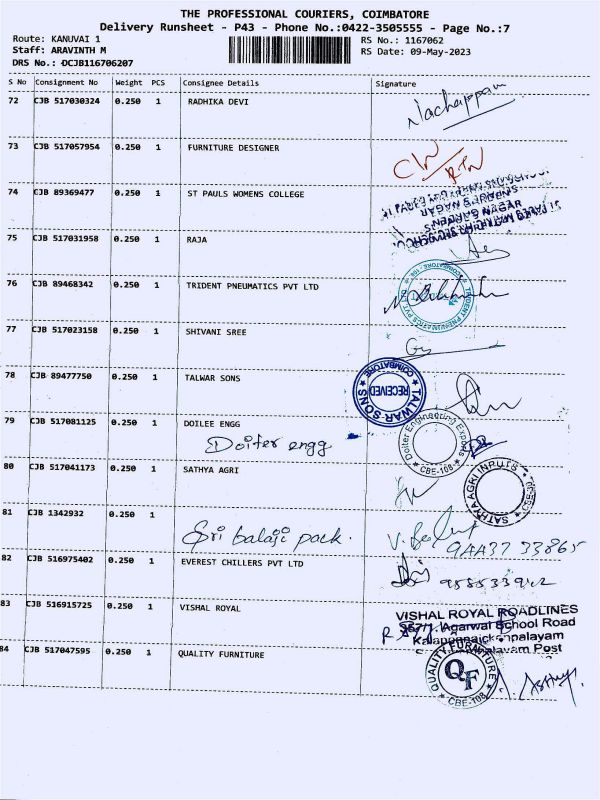 THE PROFESSIONAL COURIERS, COIMBATORE
Delivery Runsheet - P43 - Phone No.:0422-3505555 - Page No.:7
Route: KANUVAI 1 RS No.: 1167062
Staff: ARAVINTH M RS Date: 09-May-2023
DRS No.: DCJB116706207
S No Consignment No Weight PCS Consignee Details Signature
72 CJB 517030324 0.250 1 RADHIKA DEVI Nachappan
73 CJB 517057954 0.250 1 FURNITURE DESIGNER
74 CJB 89369477 0.250 1 ST PAULS WOMENS COLLEGE
75 CJB 517031958 0.250 1 RAJA
76 CJB 89468342 0.250 1 TRIDENT PNEUMATICS PVT LTD
TRIDENT PNEUMATICS PVT. COIMBATORE
77 CJB 517023158 0.250 1 SHIVANI SREE
78 CJB 89477750 0.250 1 TALWAR SONS
TALWAR SONS COIMBATORE
RECEIVED
79 CJB 517081125 0.250 1 DOILEE ENGG
Doiter engg
Doiter Engineering
CBE-108
80 CJB 517041173 0.250 1 SATHYA AGRI
SATHYA AGRI INPUTS
81 CJB 1342932 0.250 1
Sri balaji pack.
82 CJB 516975402 0.250 1 EVEREST CHILLERS PVT LTD
83 CJB 516915725 0.250 1 VISHAL ROYAL
VISHAL ROYAL ROADLINES
Agarwal School Road
Post
84 CJB 517047595 0.250 1 QUALITY FURNITURE
QUALITY FURNITURE
QF
CBE-108